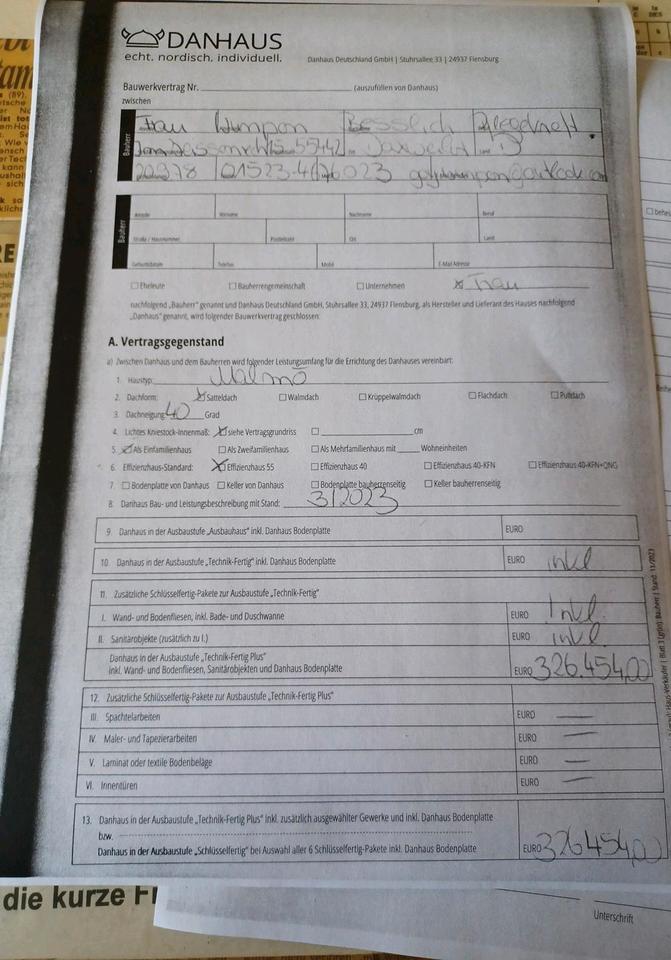 DANHAUS
echt. nordisch. individuell.
Danhaus Deutschland GmbH | Stuhrsallee 33 | 24937 Flensburg
Bauwerkvertrag Nr. (auszufüllen von Danhaus)
zwischen
Bauherr
Frau
Bauherr
Anrede Vorname Nachname Beruf
Straße / Hausnummer Postleitzahl Ort Land
Geburtsdatum Telefon Mobil E-Mail-Adresse
Eheleute Bauherrengemeinschaft Unternehmen Frau
nachfolgend „Bauherr“ genannt und Danhaus Deutschland GmbH, Stuhrsallee 33, 24937 Flensburg, als Hersteller und Lieferant des Hauses nachfolgend
„Danhaus“ genannt, wird folgender Bauwerkvertrag geschlossen:
A. Vertragsgegenstand
a) Zwischen Danhaus und dem Bauherren wird folgender Leistungsumfang für die Errichtung des Danhauses vereinbart:
1. Haustyp: Malmö
2. Dachform: Satteldach Walmdach Krüppelwalmdach Flachdach Pultdach
3. Dachneigung 40 Grad
4. Lichtes Kniestock-Innenmaß: siehe Vertragsgrundriss cm
5. Als Einfamilienhaus Als Zweifamilienhaus Als Mehrfamilienhaus mit Wohneinheiten
6. Effizienzhaus-Standard: Effizienzhaus 55 Effizienzhaus 40 Effizienzhaus 40-KFN Effizienzhaus 40-KFN+QNG
7. Bodenplatte von Danhaus Keller von Danhaus Bodenplatte bauherrenseitig Keller bauherrenseitig
8. Danhaus Bau- und Leistungsbeschreibung mit Stand: 3/2023
9. Danhaus in der Ausbaustufe „Ausbauhaus“ inkl. Danhaus Bodenplatte EURO
10. Danhaus in der Ausbaustufe „Technik-Fertig“ inkl. Danhaus Bodenplatte EURO inkl
11. Zusätzliche Schlüsselfertig-Pakete zur Ausbaustufe „Technik-Fertig“
I. Wand- und Bodenfliesen, inkl. Bade- und Duschwanne EURO inkl
II. Sanitärobjekte (zusätzlich zu I.) EURO inkl
Danhaus in der Ausbaustufe „Technik-Fertig Plus“
inkl. Wand- und Bodenfliesen, Sanitärobjekten und Danhaus Bodenplatte EURO 326.454,00
12. Zusätzliche Schlüsselfertig-Pakete zur Ausbaustufe „Technik-Fertig Plus“
III. Spachtelarbeiten EURO
IV. Maler- und Tapezierarbeiten EURO
V. Laminat oder textile Bodenbeläge EURO
VI. Innentüren EURO
13. Danhaus in der Ausbaustufe „Technik-Fertig Plus“ inkl. zusätzlich ausgewählter Gewerke und inkl. Danhaus Bodenplatte
bzw.
Danhaus in der Ausbaustufe „Schlüsselfertig“ bei Auswahl aller 6 Schlüsselfertig-Pakete inkl. Danhaus Bodenplatte EURO 326454,00
die kurze
Unterschrift